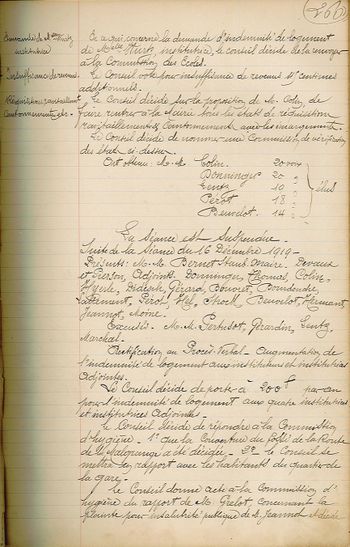 266
Demande de Melle Kurtz
institutrice
Insuffisance de revenus
Réquisitions, ravitaillement
Cantonnements, etc.
En ce qui concerne la demande d'indemnité de logement
de Melle Kurtz institutrice, le conseil décide de la renvoyer
à la Commission des Ecoles.
Le Conseil vote pour insuffisance de revenus centimes
additionnels.
Le Conseil décide sur la proposition de M. Colin, de
faire rentrer à la Mairie tous les états de réquisition
ravitaillement & Cantonnement avec les émargements.
Le Conseil décide de nommer une Commission de vérification
des états ci-dessus.
Ont obtenu: M.M. Colin 20 voix
Donninger 20 "
Lentz 10 "
Pérot 18 "
Beuvelot 14 "
élus
La Séance est Suspendue.
Suite de la Séance du 16 Décembre 1919 -
Présents: M.M. Bernet, Maire. Devaux
et Pierson, Adjoints. Donninger, Thomas, Colin,
Gérard, Bouvret,
Pérot, Beuvelot, Hermant
Jeannot, Moine.
Excusés. M.M. Pertusot, Gérardin, Lentz,
Marchal.
Rectification au Procès-Verbal - Augmentation de
l'indemnité de logement aux instituteurs et institutrices
adjointes.
Le Conseil décide de porter à 200f par an
pour l'indemnité de logement aux quatre institutrices
et institutrices adjointes.
Le Conseil décide de répondre à la Commission
d'hygiène. 1° que la Couverture du fossé de la Route
de a été décidée. - 2° Le Conseil se
mettra en rapport avec les habitants du quartier de
la gare.
Le Conseil donne acte à la Commission d'
hygiène du rapport de M. Grelot, concernant la
plainte pour insalubrité publique de M. Jeannot et décide